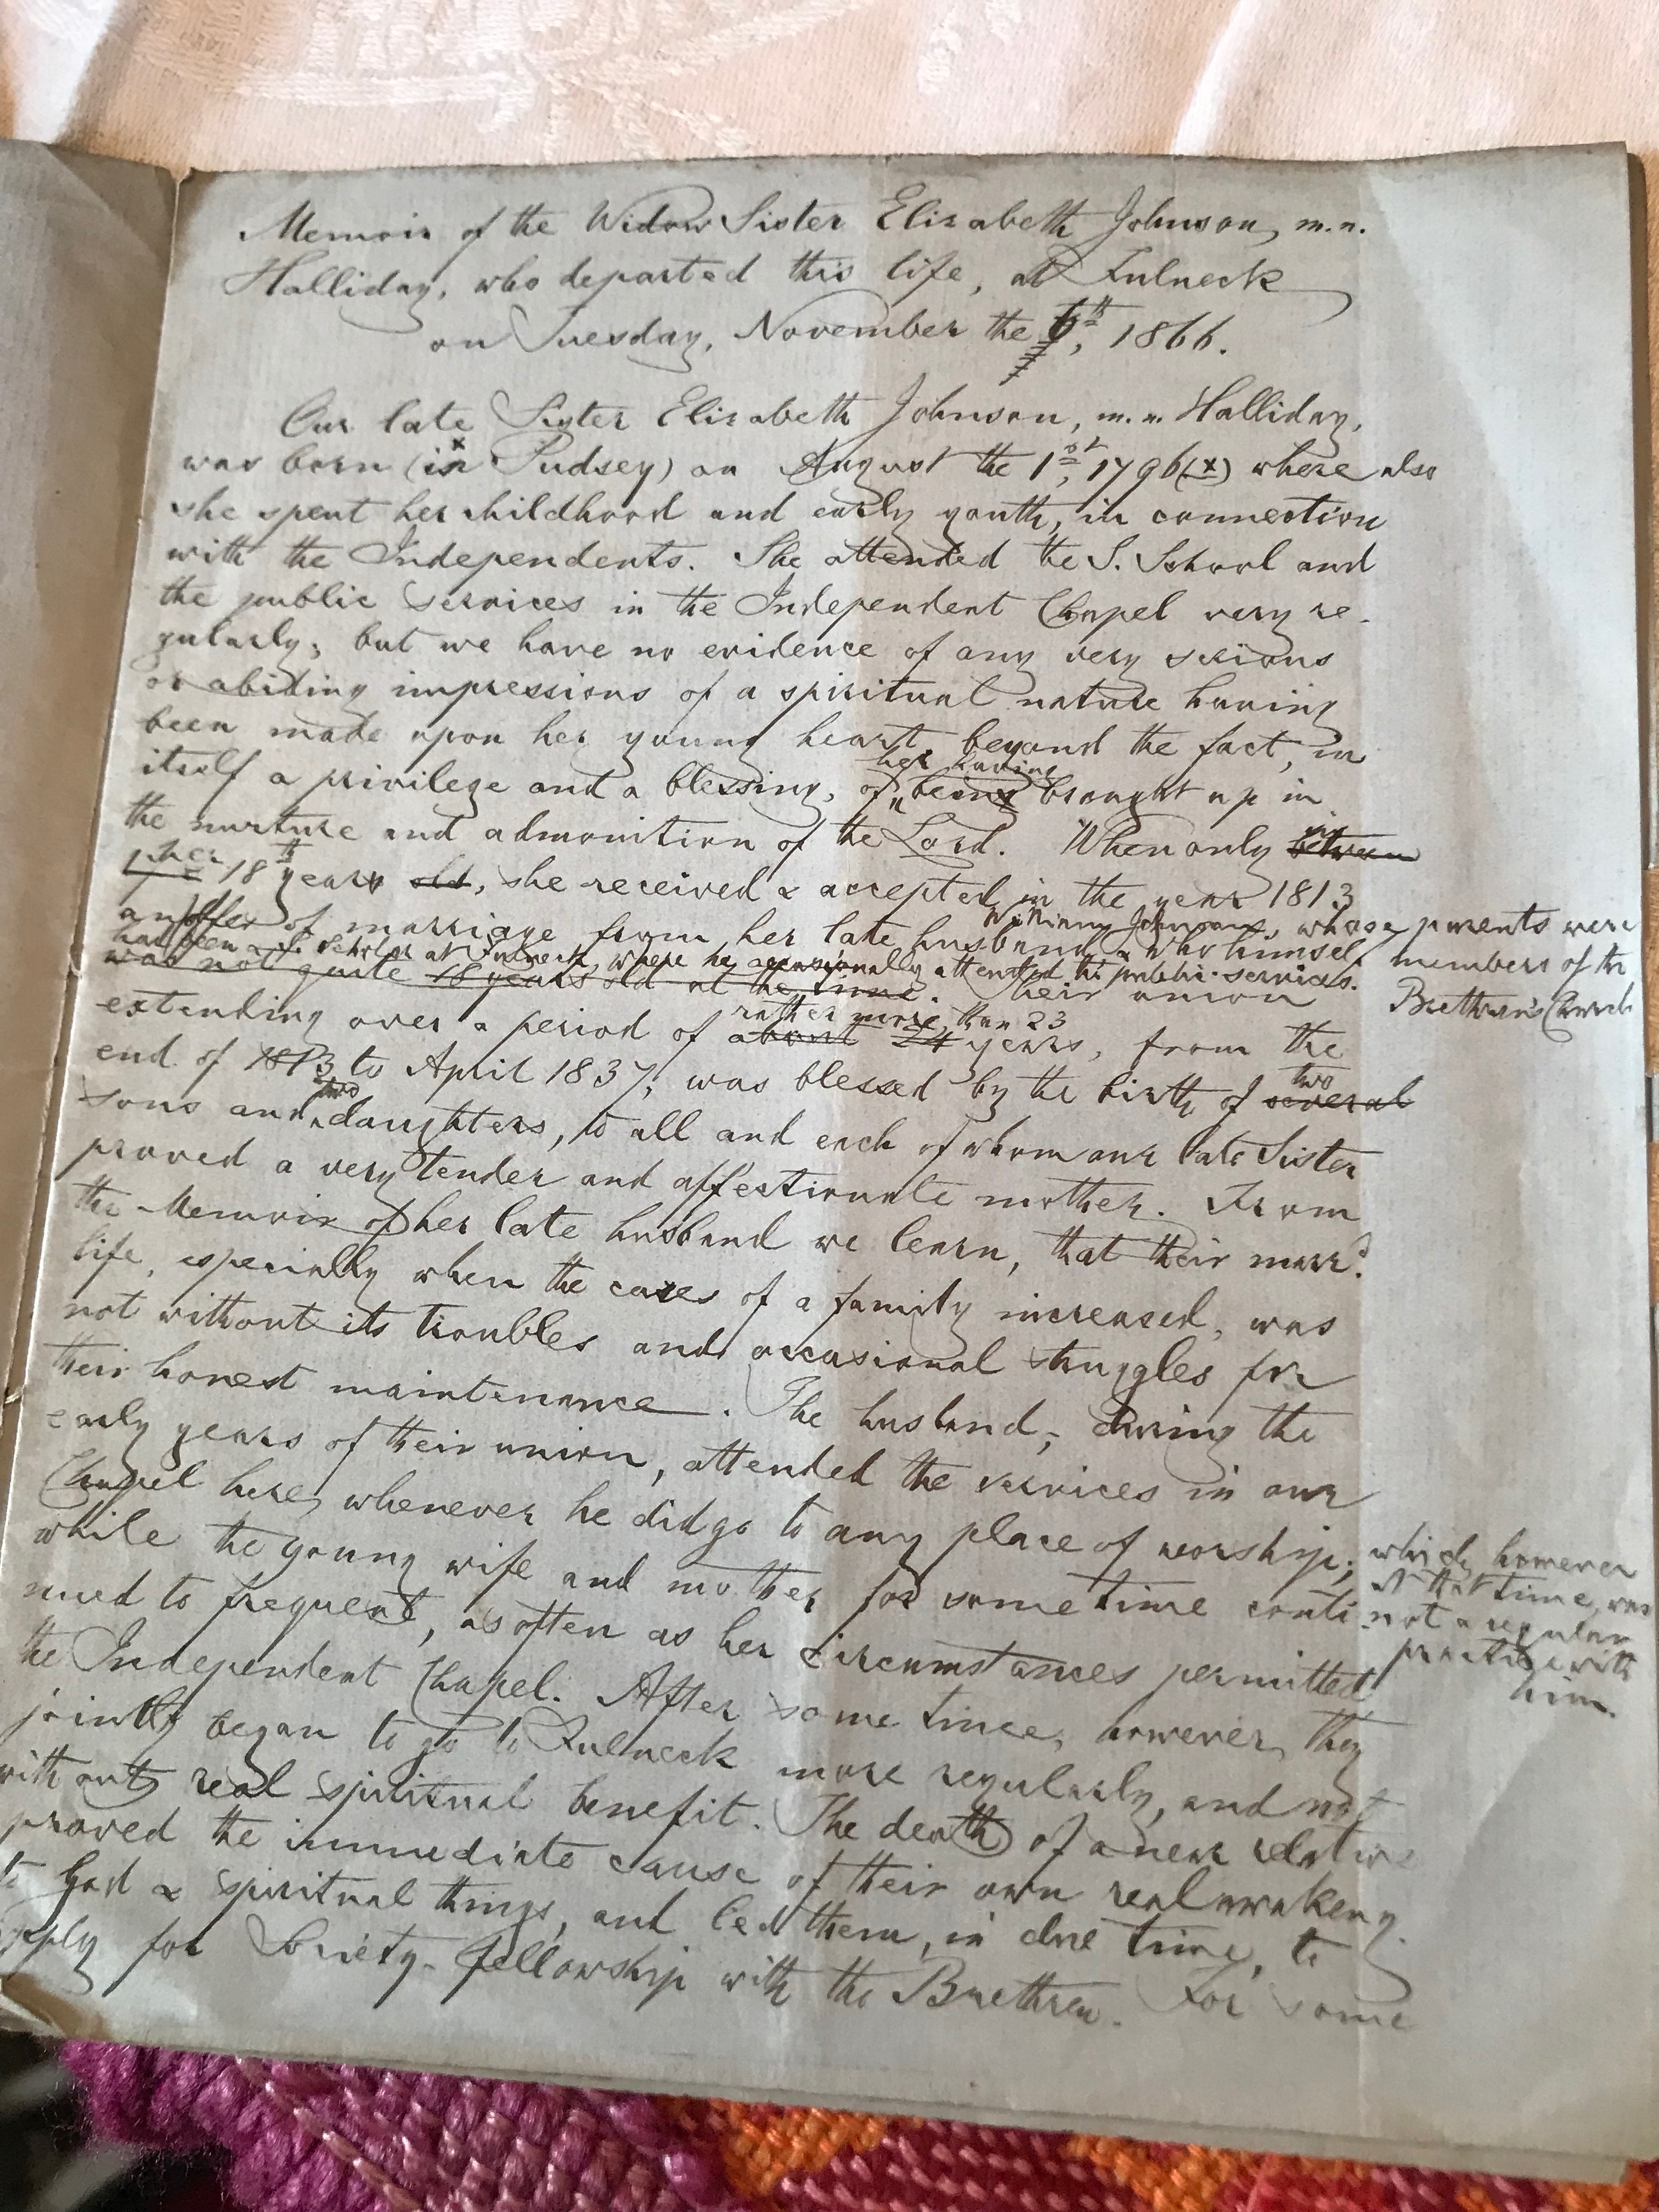 Memoir of the Widow Sister Elizabeth Johnson, m.n.
Halliday, who departed this life, at Fulneck
on Tuesday, November the 6th, 1866.
Our late Sister Elizabeth Johnson, m.n. Halliday,
was born (in Pudsey) on August the 1st, 1796 (x) where also
she spent her childhood and early youth, in connection
with the Independents. She attended the S. School and
the public services in the Independent Chapel very re-
gularly; but we have no evidence of any very serious
or abiding impressions of a spiritual nature having
been made upon her young heart, beyond the fact, in
her having
itself a privilege and a blessing, of being brought up in
the nurture and admonition of the Lord. When only between
in
her 18th year old, she received & accepted in the year 1813
an offer of marriage from her late husband William Johnson, whose parents were
members of the
Brethren's Church
& who himself
had been a S. Scholar at Fulneck, where he occasionally attended the public services.
was not quite 18 years old at the time. Their union
rather more than 23
extending over a period of about 24 years, from the
end of 1813 to April 1837, was blessed by the birth of several
two
sons and two daughters, to all and each of whom our late Sister
proved a very tender and affectionate mother. From
the Memoir of her late husband we learn, that their marrd
life, especially when the cares of a family increased, was
not without its troubles and occasional struggles for
their honest maintenance. The husband, during the
early years of their union, attended the services in our
Chapel here, whenever he did go to any place of worship;
which however
at that time, was
not a regular
practise with
him.
while the young wife and mother for some time conti-
nued to frequent, as often as her circumstances permitted
the Independent Chapel. After some time, however, they
jointly began to go to Fulneck more regularly, and not
without real spiritual benefit. The death of a near relative
proved the immediate cause of their own real awakeng
to God & spiritual things, and led them, in due time, to
apply for Society-fellowship with the Brethren. For some